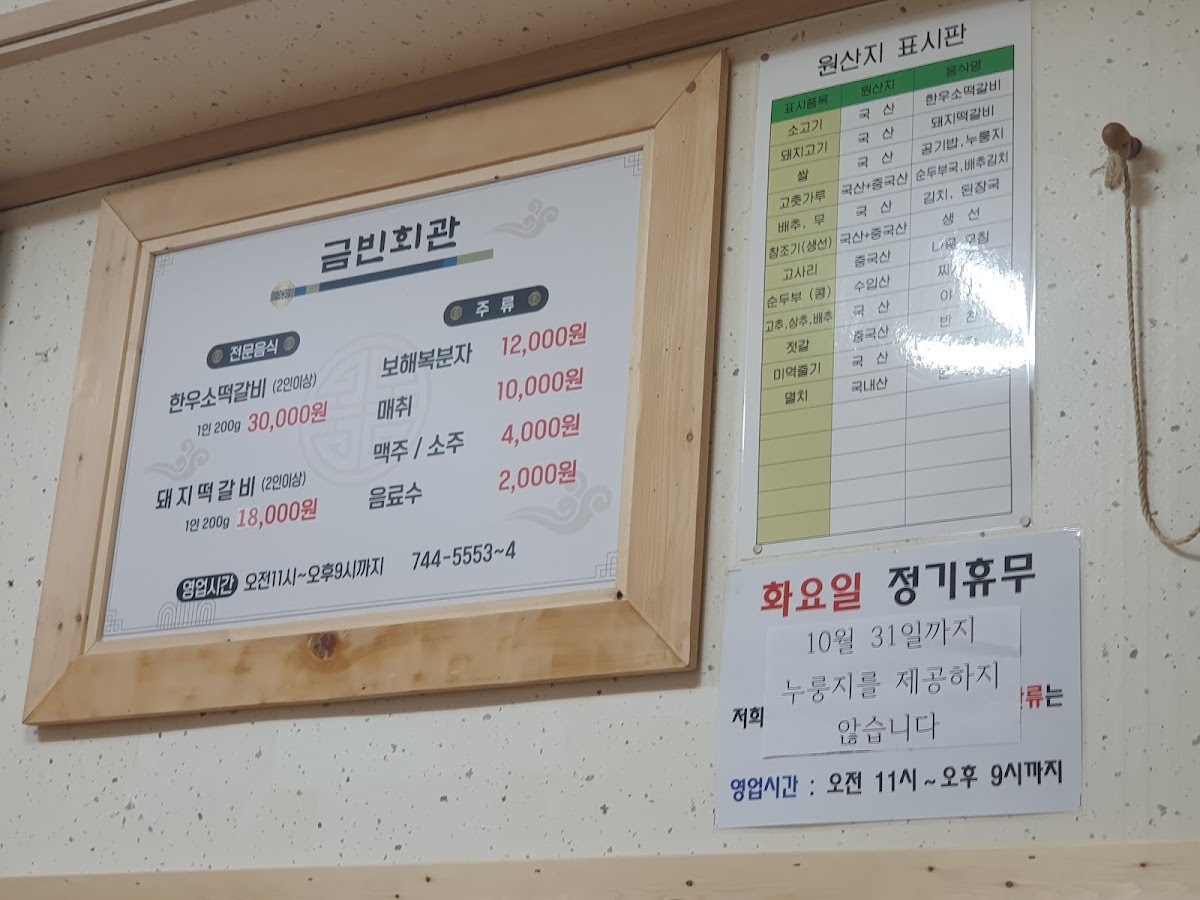 금빈회관
전문음식
한우소떡갈비 (2인이상)
1인 200g 30,000원
돼지떡갈비 (2인이상)
1인 200g 18,000원
주류
보해복분자 12,000원
매취 10,000원
맥주 / 소주 4,000원
음료수 2,000원
영업시간 오전11시~오후9시까지 744-5553~4
원산지 표시판
표시품목 원산지 음식명
소고기 국 산 한우소떡갈비
돼지고기 국 산 돼지떡갈비
쌀 국 산 공기밥,누룽지
고춧가루 국산+중국산 순두부국,배추김치
배추, 무 국 산 김치, 된장국
참조기(생선) 국산+중국산 생 선
고사리 중국산
순두부 (콩) 수입산
고추,상추,배추 국 산
젓갈 중국산 반 찬
미역줄기 국 산
멸치 국내산
화요일 정기휴무
10월 31일까지
누룽지를 제공하지
않습니다
저희 류는
영업시간 : 오전 11시~오후 9시까지